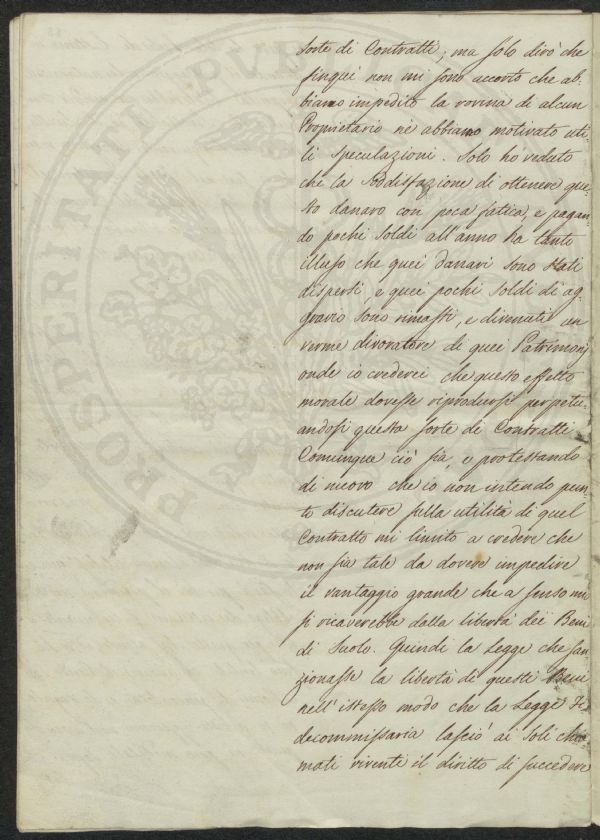 sorte di Contratti; ma solo dirò che
finqui non mi sono accorto che ab-
biamo impedito la rovina di alcun
Proprietario nè abbiamo motivato uti-
li speculazioni. Solo hò veduto
che la soddisfazione di ottenere que-
sto danaro con poca fatica, e pagan-
do pochi soldi all'anno ha tanto
illuso che quei danari sono stati
dispersi, e quei pochi soldi di ag-
gravio sono rimasti, e divenuti un
verme divoratore di quei Patrimonj
onde io crederei che questo effetto
morale dovesse riprodursi perpetu-
andosi questa sorte di Contratti
Comunque ciò sia, e protestando
di nuovo che io non intendo pun-
to discutere sulla utilità di quel
Contratto mi limito a credere che
non sia tale da dovere impedire
il vantaggio grande che a senso mio
si ricaverebbe dalla libertà dei Beni
di Suolo. Quindi la Legge che san-
zionasse la libertà di questi Beni
nell'istesso modo che la Legge Fi-
decommissaria lasciò ai soli chia-
mati viventi il diritto di succedere
PROSPERITATI PVBLICAE